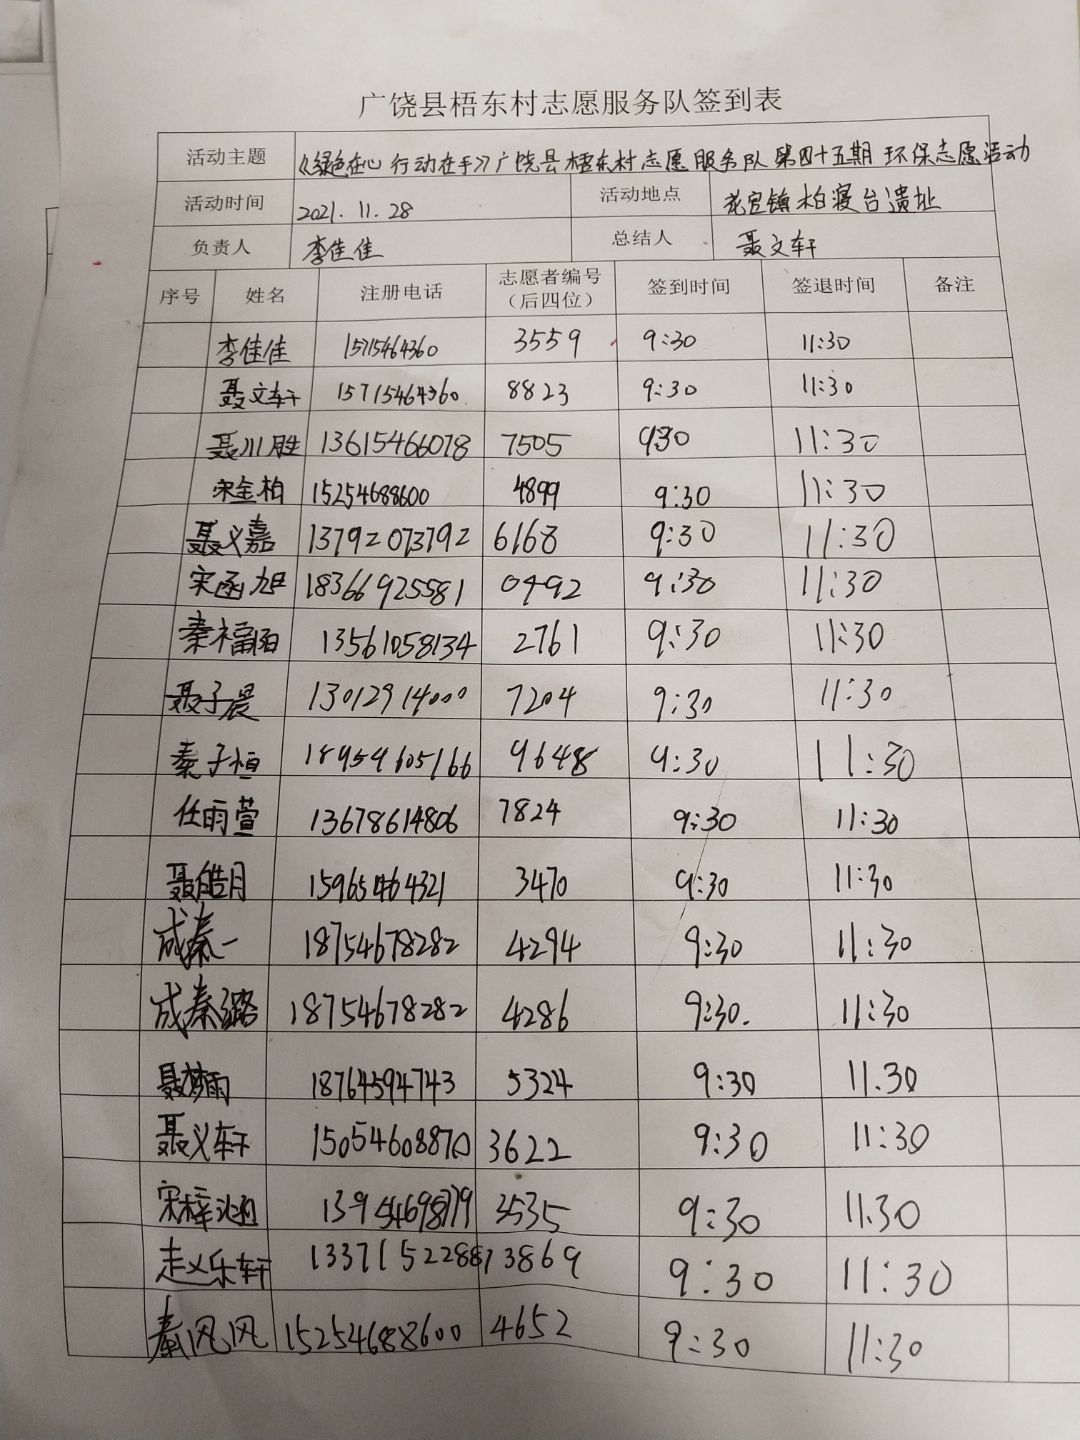 广饶县梧东村志愿服务队签到表
活动主题 《绿色在心 行动在手》广饶县梧东村志愿服务队第四十五期环保志愿活动
活动时间 2021.11.28 活动地点 花官镇柏寝台遗址
负责人 李佳佳 总结人 聂文轩
序号 姓名 注册电话 志愿者编号（后四位） 签到时间 签退时间 备注
李佳佳 15715464360 3559 9:30 11:30
聂文轩 15715464360 8823 9:30 11:30
聂川胜 13615466078 7505 9:30 11:30
宋金柏 15254688600 4899 9:30 11:30
聂义嘉 13792073792 6168 9:30 11:30
宋函旭 18366925581 0492 9:30 11:30
秦福阳 13561058134 2761 9:30 11:30
聂子晨 13012914000 7204 9:30 11:30
秦子恒 18954605166 9648 9:30 11:30
任雨萱 13678614806 7824 9:30 11:30
聂皓月 15965464321 3470 9:30 11:30
成秦一 18754678282 4294 9:30 11:30
成秦璐 18754678282 4286 9:30. 11:30
聂梦雨 18764594743 5324 9:30 11.30
聂义轩 15054608870 3622 9:30 11:30
宋梓涵 13954698779 3535 9:30 11.30
走义乐轩 13371522887 3869 9:30 11:30
秦风风 15254688600 4652 9:30 11:30